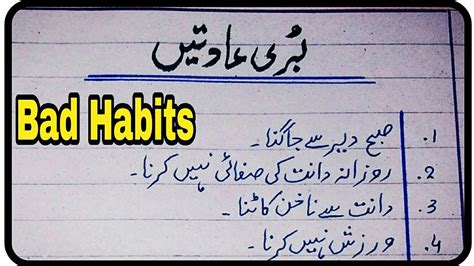 بُری عادتیں
Bad Habits
1. صبح دیر سے جاگنا۔
2. روزانہ دانت کی صفائی نہیں کرنا۔
3. دانت سے ناخن کاٹنا۔
4. ورزش نہیں کرنا۔